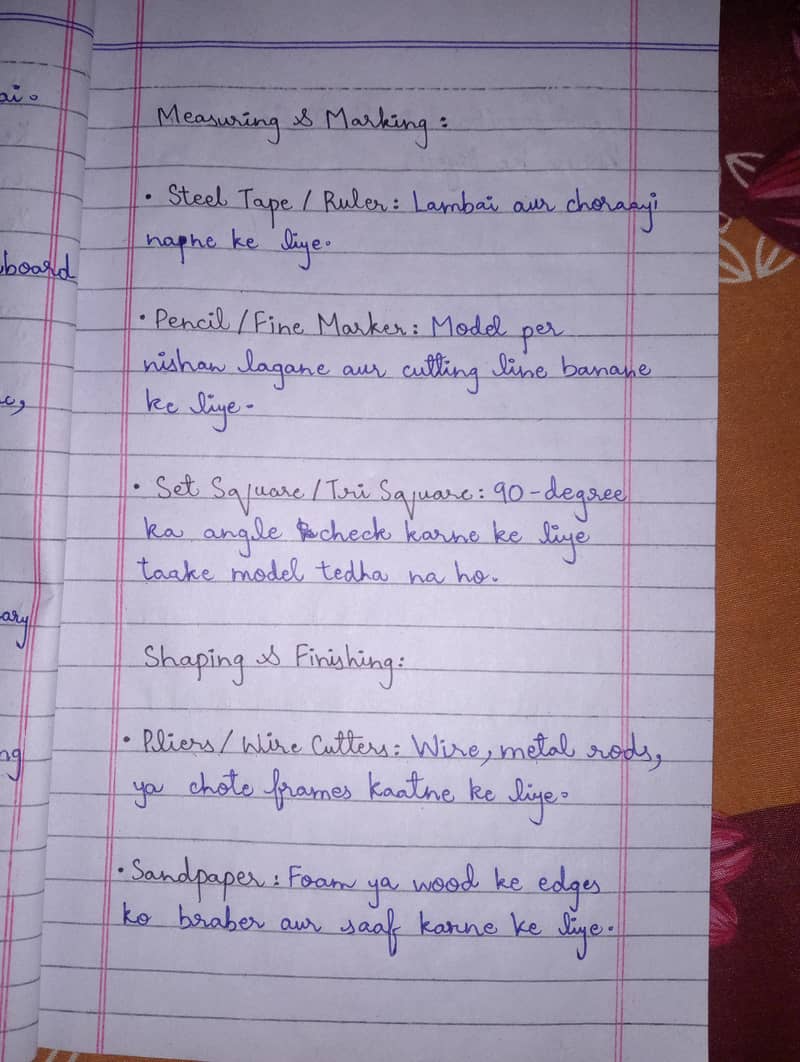 ai.
board
ary
ng
Measuring & Marking :
• Steel Tape / Ruler : Lambai aur choraayi
napne ke liye.
• Pencil / Fine Marker : Model per
nishan lagane aur cutting line banane
ke liye.
• Set Square / Tri Square : 90-degree
ka angle check karne ke liye
taake model tedha na ho.
Shaping & Finishing :
• Pliers / Wire Cutters : Wire, metal rods,
ya chote frames kaatne ke liye.
• Sandpaper : Foam ya wood ke edges
ko braber aur saaf karne ke liye.